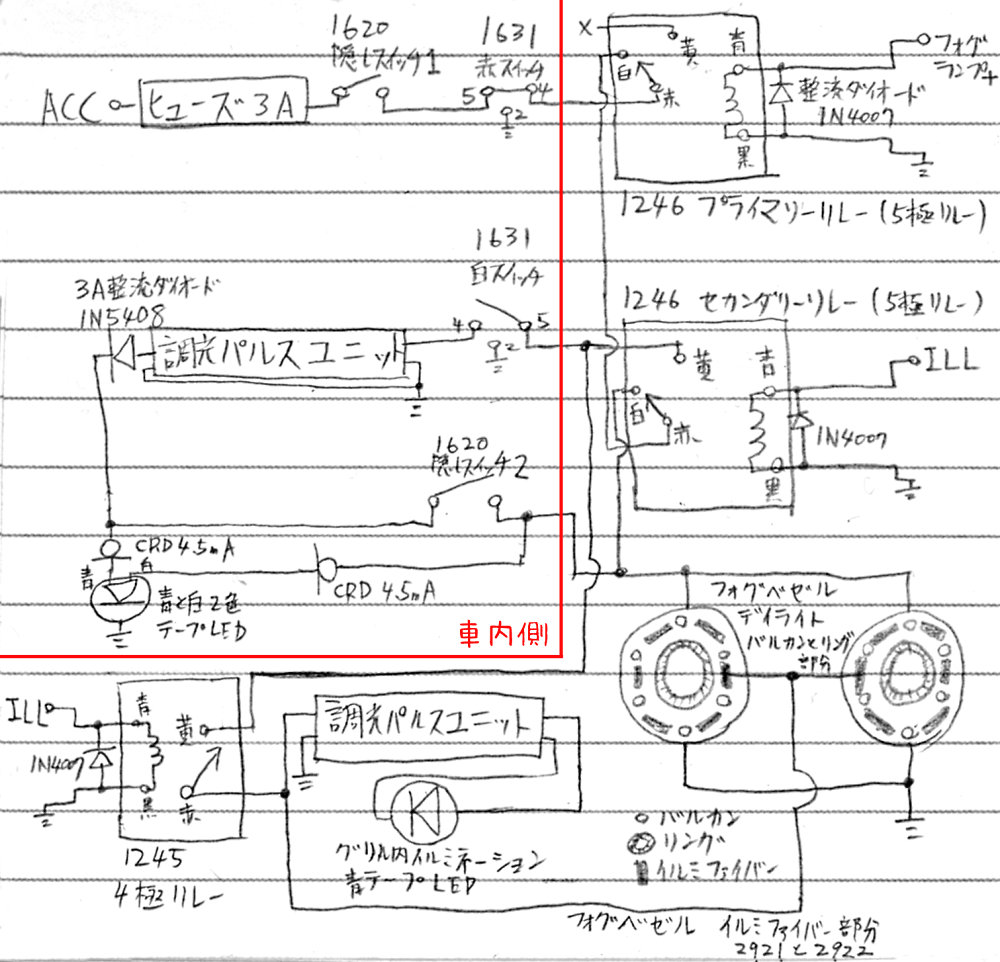 1620
隠しスイッチ1
1631
赤スイッチ
ACC
ヒューズ3A
5
4
2
X
黄
青
白
赤
黒
フォグ
ランプ+
整流ダイオード
1N4007
1246 プライマリーリレー(5極リレー)
1631
白スイッチ
4
5
2
3A整流ダイオード
1N5408
調光パルスユニット
1246 セカンダリーリレー(5極リレー)
黄
青
白
赤
黒
ILL
1N4007
1620
隠しスイッチ2
CRD 4.5mA
青
白
青と白2色
テープLED
CRD 4.5mA
車内側
フォグベゼル
デイライト
バルカンとリング
部分
ILL
青
黄
1N4007
黒
赤
1245
4極リレー
調光パルスユニット
グリル内イルミネーション
青テープLED
バルカン
リング
イルミファイバー
フォグベゼル イルミファイバー部分
2921と2922